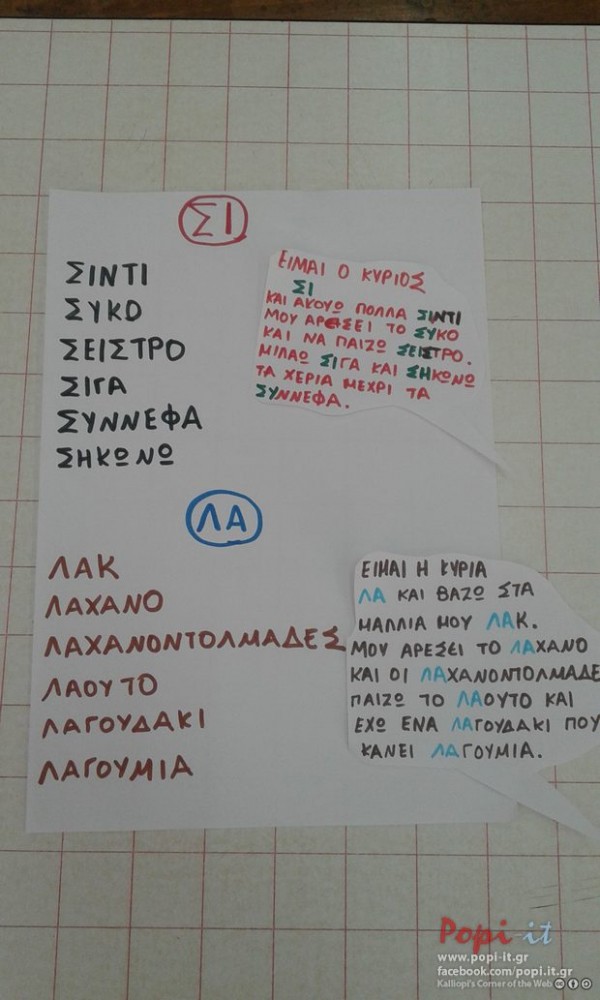 ΣΙ
ΣΙΝΤΙ
ΣΥΚΟ
ΣΕΙΣΤΡΟ
ΣΙΓΑ
ΣΥΝΝΕΦΑ
ΣΗΚΩΝΩ
ΕΙΜΑΙ Ο ΚΥΡΙΟΣ
ΣΙ
ΚΑΙ ΑΚΟΥΩ ΠΟΛΛΑ ΣΙΝΤΙ
ΜΟΥ ΑΡΕΣΕΙ ΤΟ ΣΥΚΟ
ΚΑΙ ΝΑ ΠΑΙΖΩ ΣΕΙΣΤΡΟ.
ΜΙΛΑΩ ΣΙΓΑ ΚΑΙ ΣΗΚΩΝΩ
ΤΑ ΧΕΡΙΑ ΜΕΧΡΙ ΤΑ
ΣΥΝΝΕΦΑ.
ΛΑ
ΛΑΚ
ΛΑΧΑΝΟ
ΛΑΧΑΝΟΝΤΟΛΜΑΔΕΣ
ΛΑΟΥΤΟ
ΛΑΓΟΥΔΑΚΙ
ΛΑΓΟΥΜΙΑ
ΕΙΜΑΙ Η ΚΥΡΙΑ
ΛΑ ΚΑΙ ΒΑΖΩ ΣΤΑ
ΜΑΛΛΙΑ ΜΟΥ ΛΑΚ.
ΜΟΥ ΑΡΕΣΕΙ ΤΟ ΛΑΧΑΝΟ
ΚΑΙ ΟΙ ΛΑΧΑΝΟΝΤΟΛΜΑΔΕ
ΠΑΙΖΩ ΤΟ ΛΑΟΥΤΟ ΚΑΙ
ΕΧΩ ΕΝΑ ΛΑΓΟΥΔΑΚΙ ΠΟΥ
ΚΑΝΕΙ ΛΑΓΟΥΜΙΑ.
Popi-it
www.popi-it.gr
facebook.com/popi.it.gr
Kalliopi's Corner of the Web